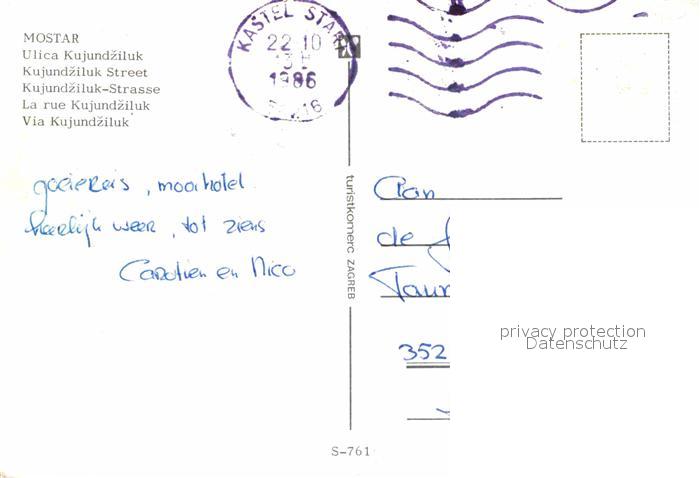 MOSTAR
Ulica Kujundžiluk
Kujundžiluk Street
Kujundžiluk-Strasse
La rue Kujundžiluk
Via Kujundžiluk
KAŠTEL STAR
22 10
1986
goeiereis, mooi hotel
heerlijk weer, tot ziens
Carolien en Nico
turistkomerc ZAGREB
de
Taur
352
privacy protection
Datenschutz
S-761